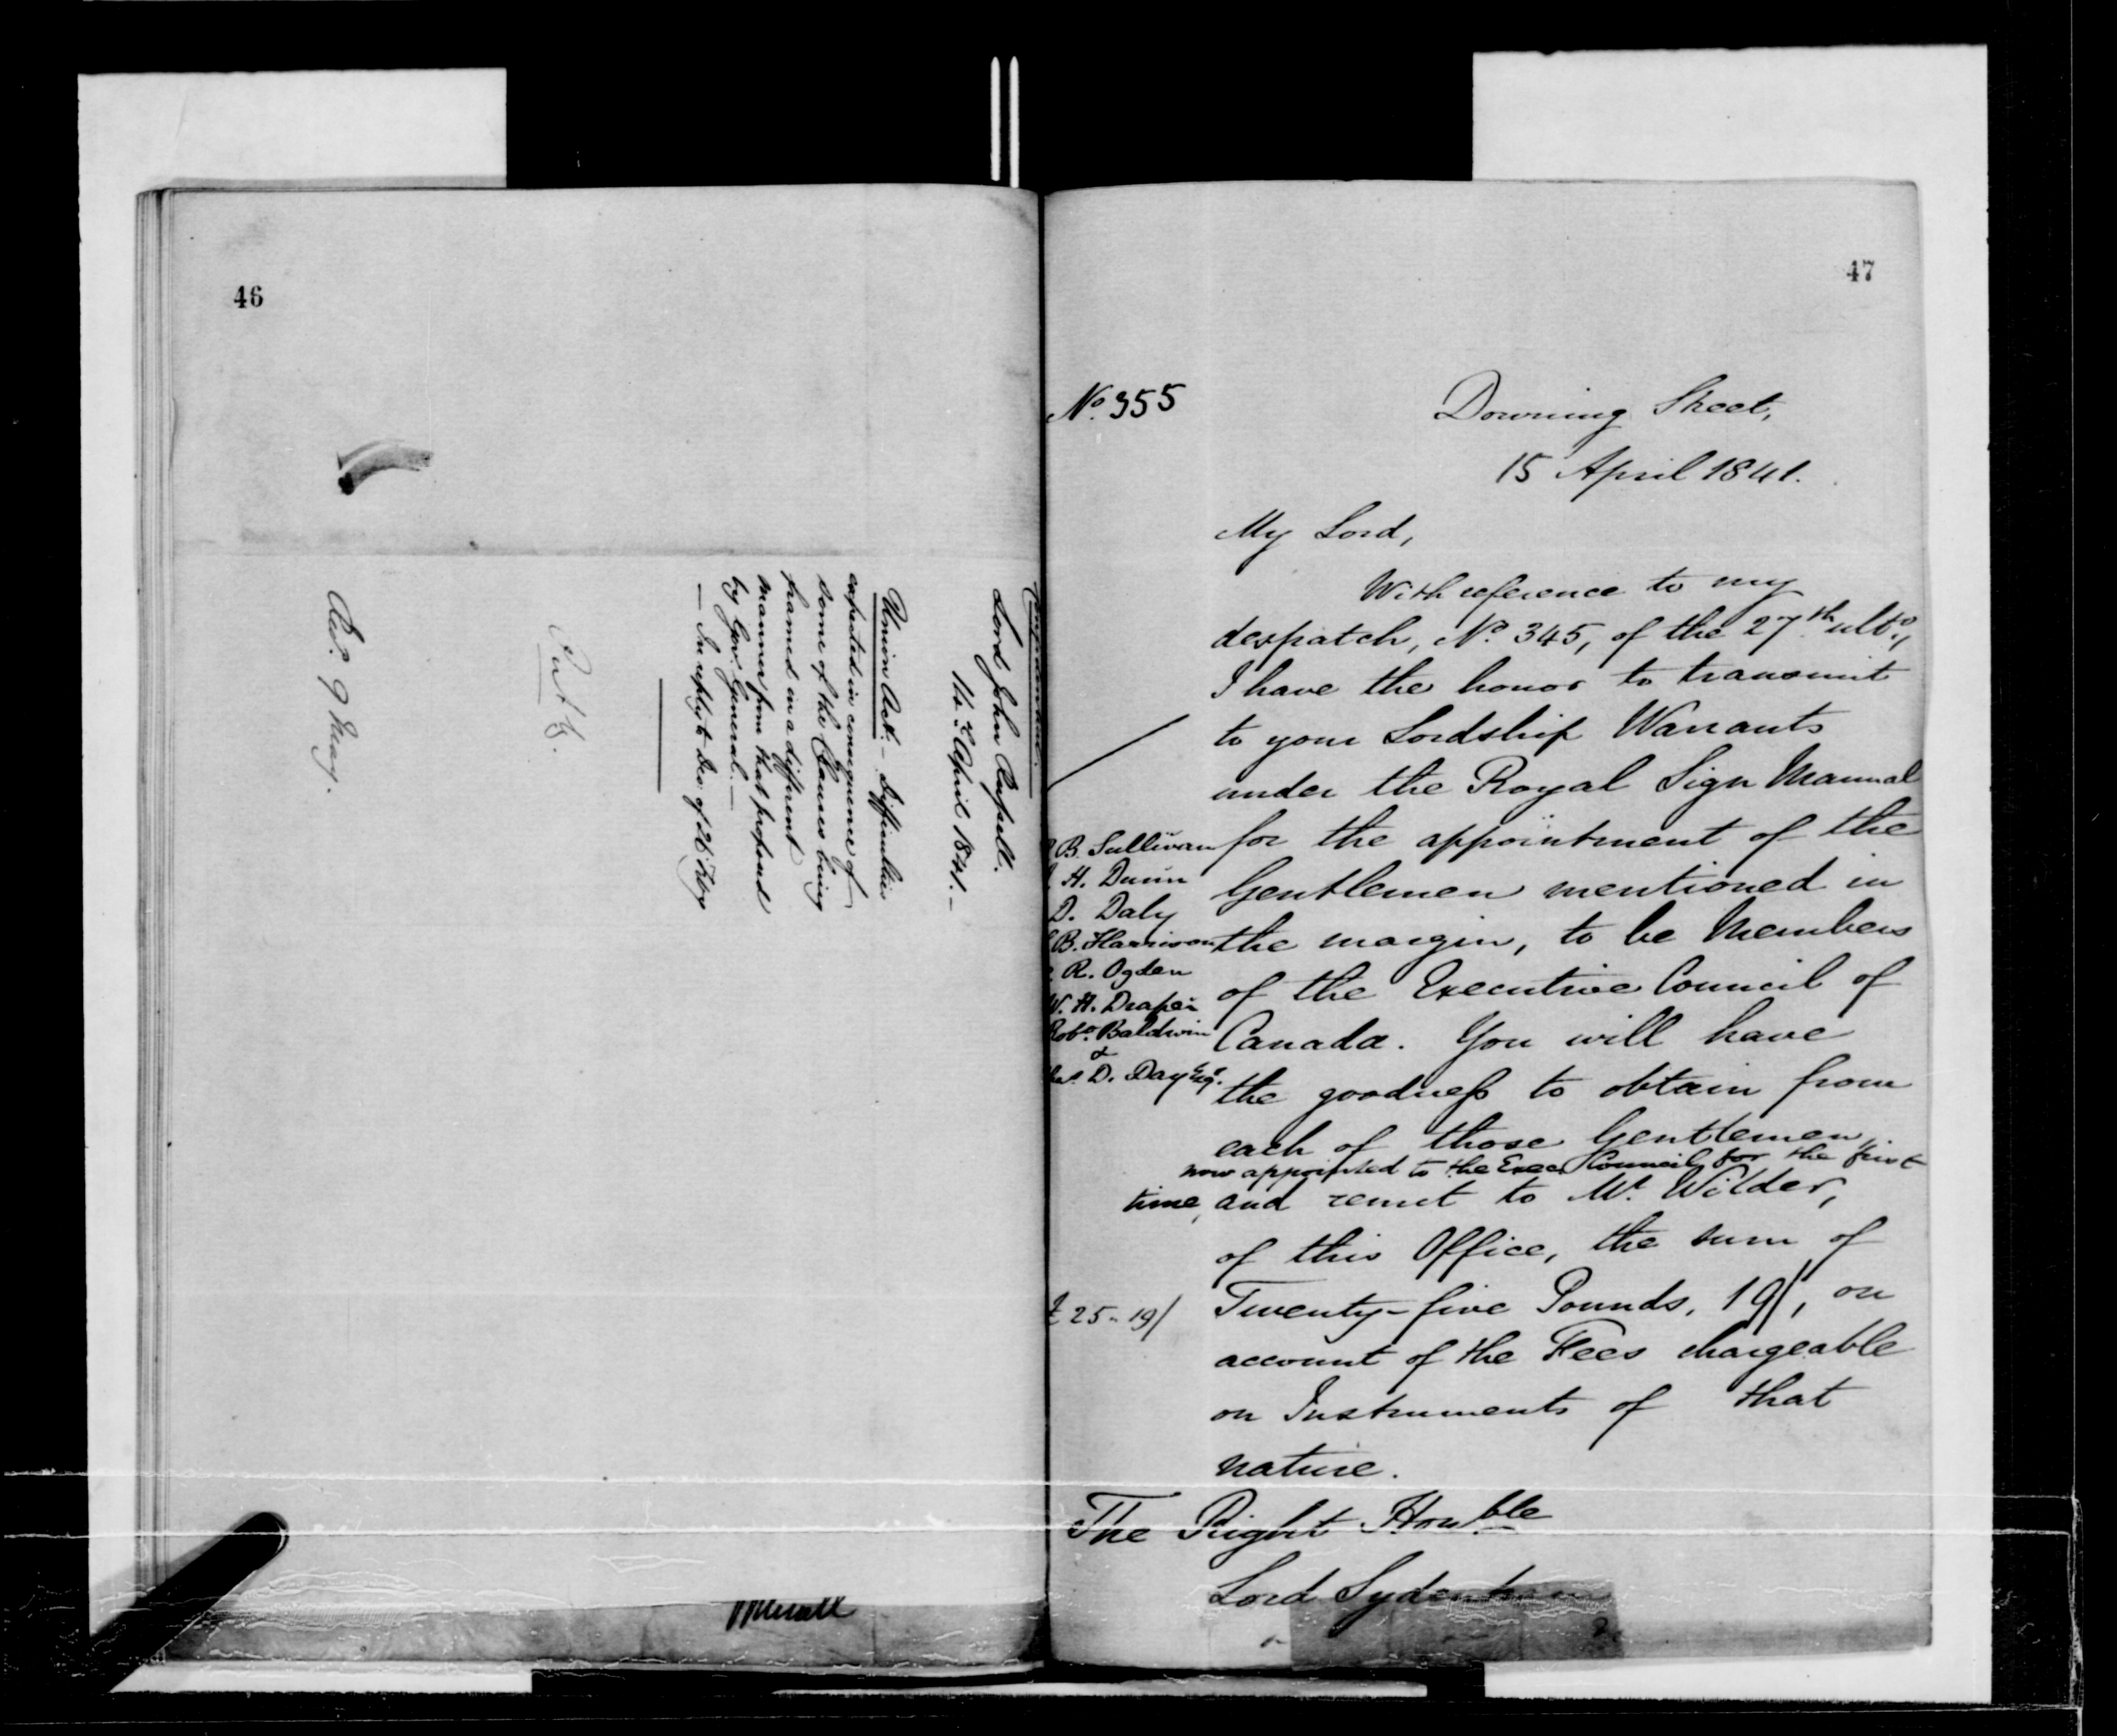 46
Confidential.
Lord John Russell.
14th April 1841.—
Union Act.— Difficulties
expected in consequence of
some of the Clauses being
framed in a different
manner from that proposed
by Gov. General.—
— In reply to Des. of 26 Feby
Recd. 9 May.
47
No. 355
Downing Street,
15 April 1841.
My Lord,
With reference to my
despatch, No. 345, of the 27th ulto.,
I have the honor to transmit
to your Lordship Warrants
under the Royal Sign Manual
for the appointment of the
Gentlemen mentioned in
the margin, to be Members
of the Executive Council of
Canada. You will have
the goodness to obtain from
each of those Gentlemen,
now appointed to the Exec. Council for the first
time, and remit to Mr. Wilder,
of this Office, the sum of
Twenty-five Pounds, 19/, on
account of the Fees chargeable
on Instruments of that
nature.
B. Sullivan
H. Dunn
D. Daly
B. Harrison
R. Ogden
W. H. Draper
Robt. Baldwin
&
D. Day Esqr.
£25-19/
The Right Honble
Lord Sydenham